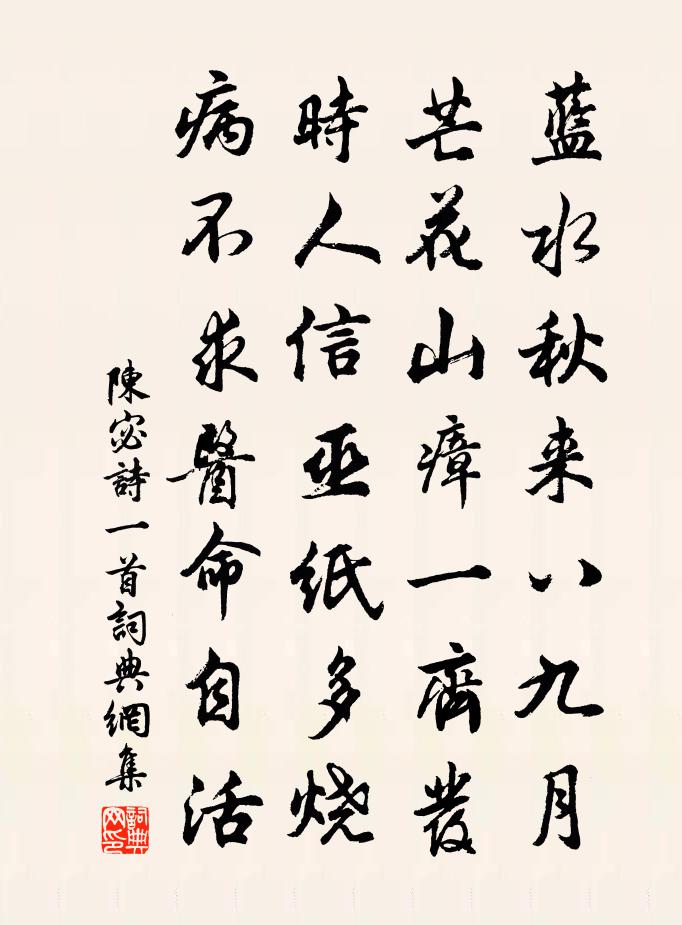 藍水秋来八九月
芒花山瘴一齊發
時人信巫紙多燒
病不求醫命自活
陳宓詩一首詞典網集
詞典網印